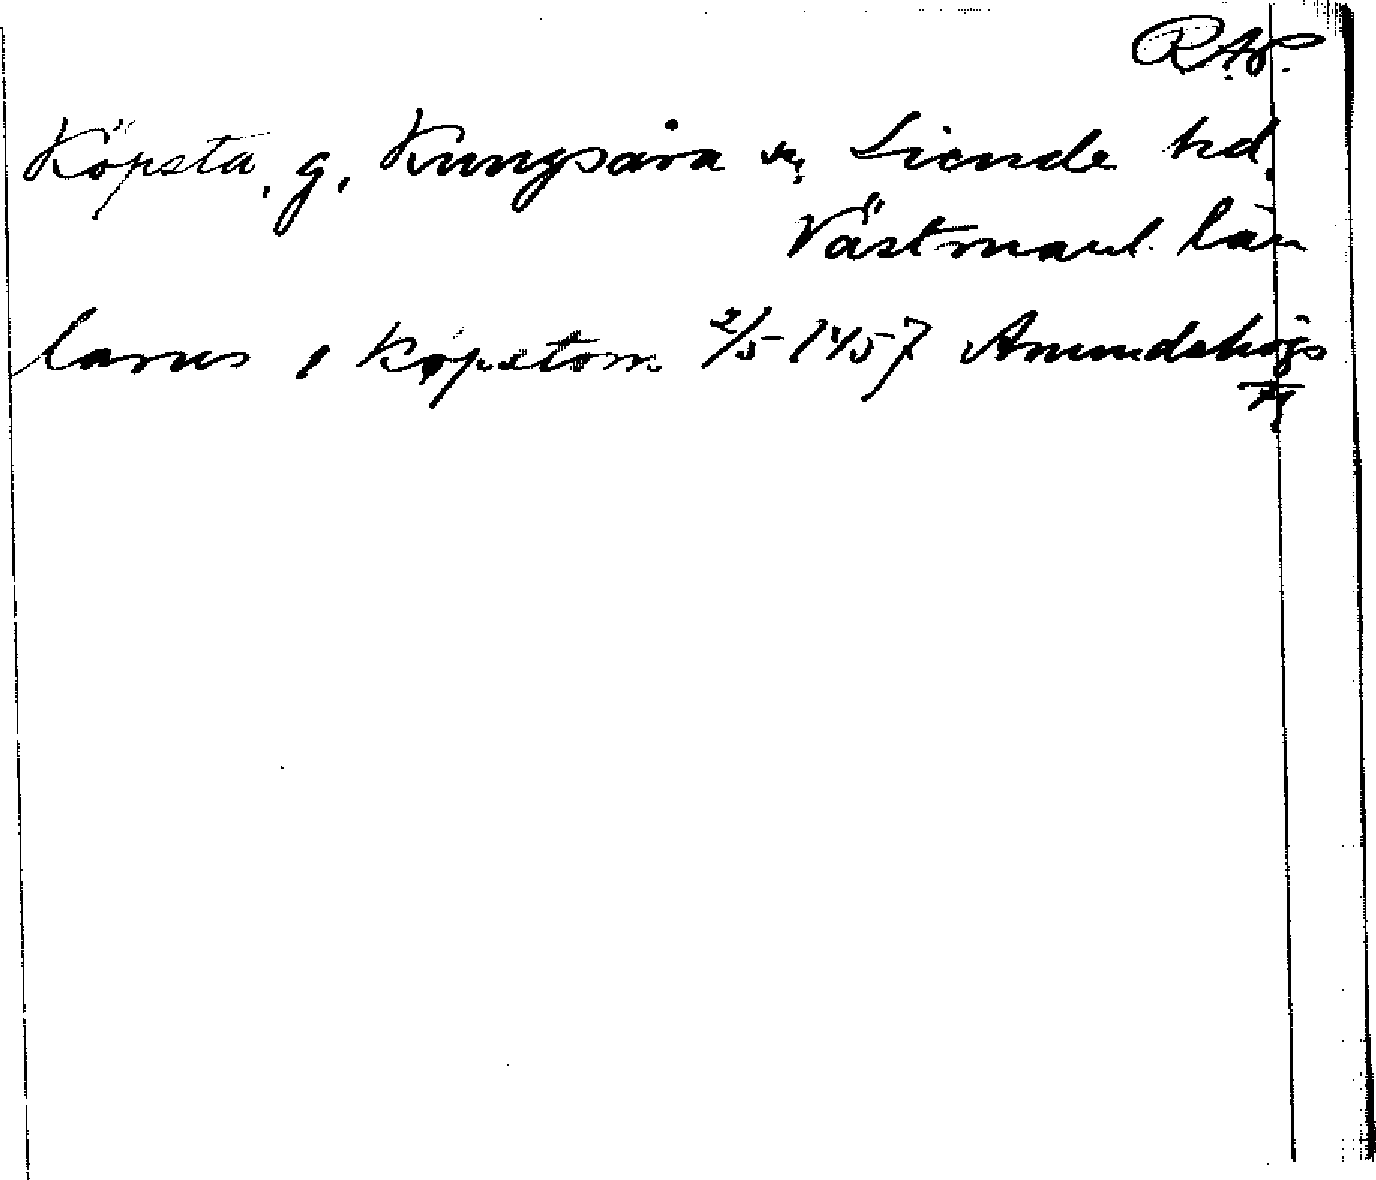 R.A.P.
Köpsta, g, Kungsåra sn, Siende hd,
Västmanl. län
larus i køpstom 2/5 1457 Anundshögs